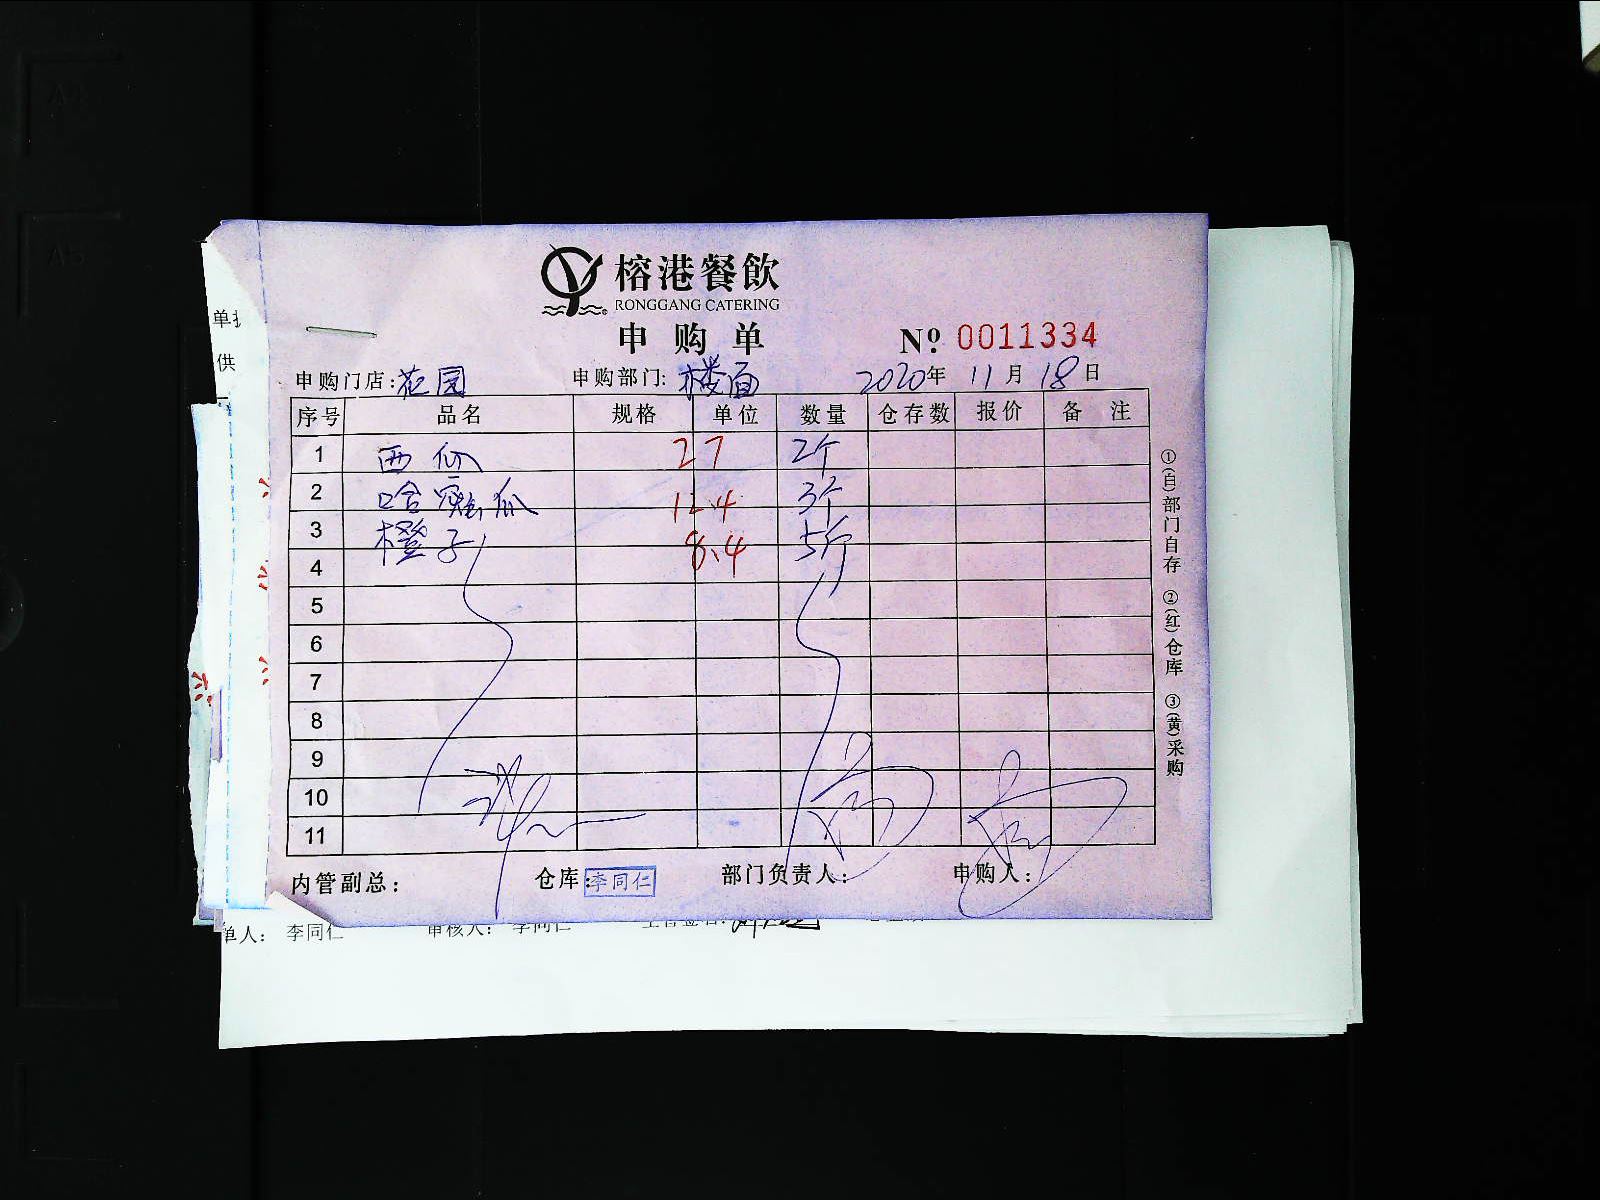 榕港餐飲
RONGGANG CATERING
申购单
Nº 0011334
申购门店:花园 申购部门:楼面 2020年 11月 18日
序号 品名 规格 单位 数量 仓存数 报价 备注
1 西瓜 27 2个
2 哈蜜瓜 12.4 3个
3 橙子 8.4 5斤
4
5
6
7
8
9
10
11
内管副总: 仓库: 李同仁 部门负责人: 申购人:
①(白)部门自存 ②(红)仓库 ③(黄)采购
单
供
单人: 李同仁 审核人: 李同仁